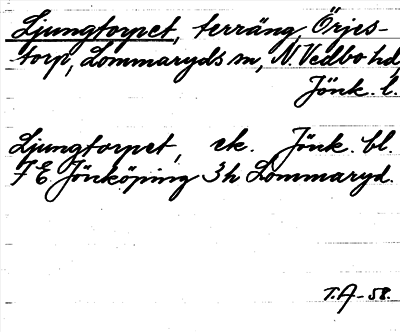 Ljungtorpet, terräng, Örjes-
torp, Lommaryds sn, N. Vedbo hd,
Jönk. l.
Ljungtorpet, ek. Jönk. bl.
7 E Jönköping 3h Lommaryd.
T.A-58.